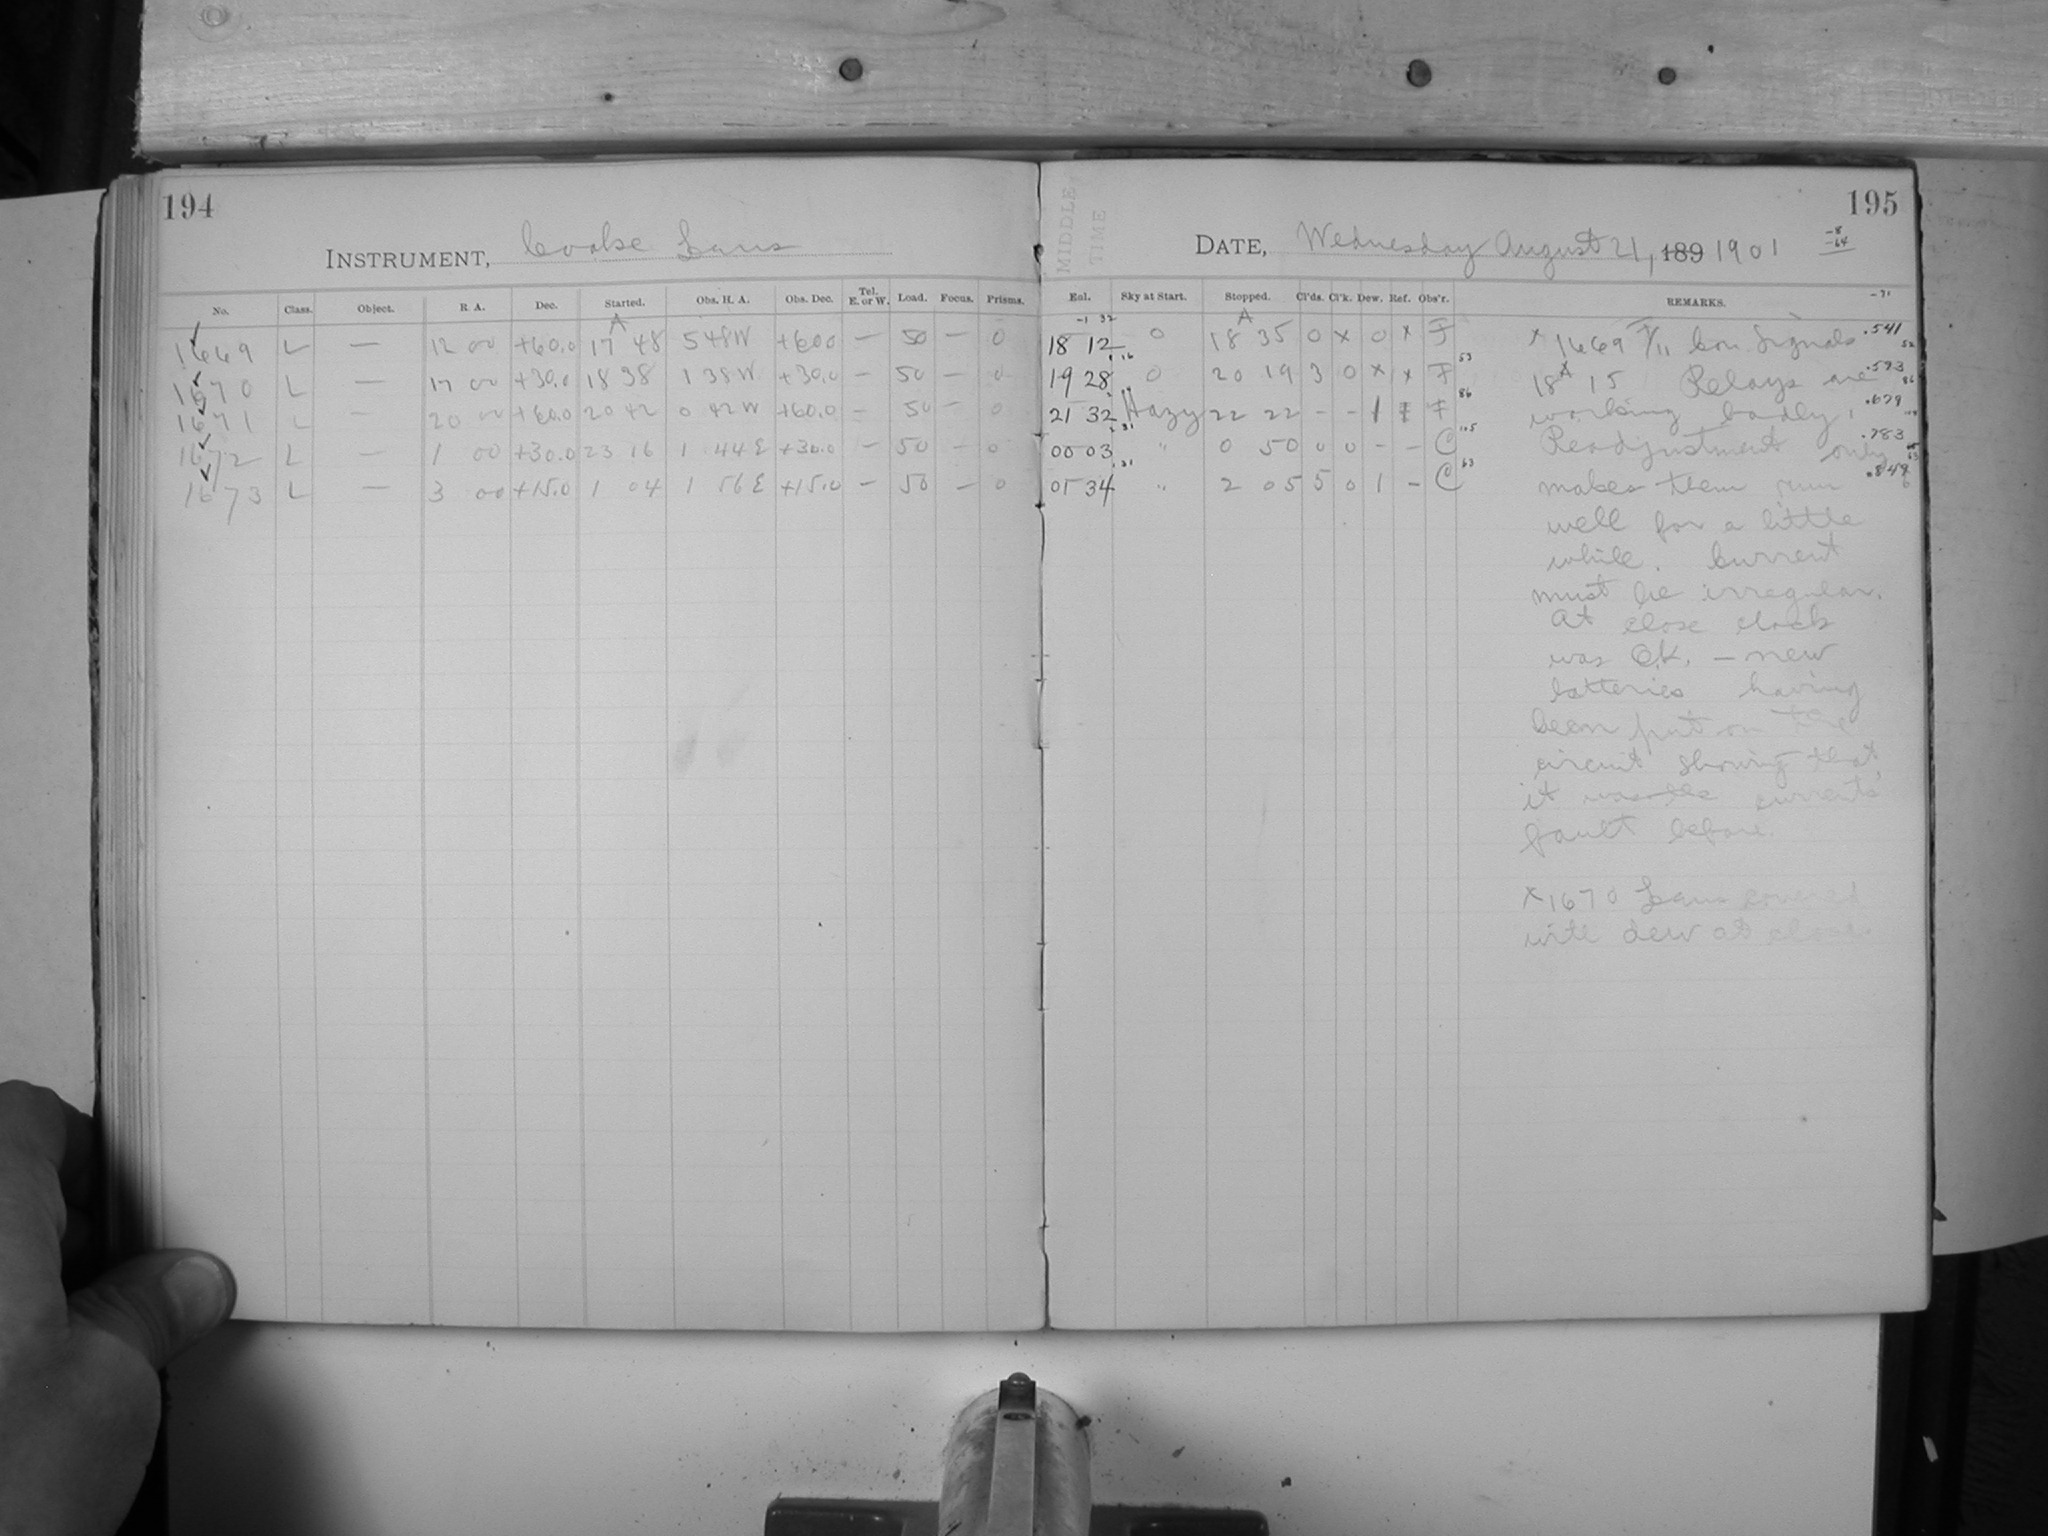 194
INSTRUMENT, Cooke Lens
No. Class. Object. R. A. Dec. Started. Obs. H. A. Obs. Dec. Tel. E. or W. Load. Focus. Prisms.
1669 L — 12 00 +60.0 17 48 5 48 W +60.0 — 50 — 0
1670 L — 17 00 +30.0 18 38 1 38 W +30.0 — 50 — 0
1671 L — 20 00 +60.0 20 42 0 42 W +60.0 — 50 — 0
1672 L — 1 00 +30.0 23 16 1 44 E +30.0 — 50 — 0
1673 L — 3 00 +15.0 1 04 1 56 E +15.0 — 50 — 0
MIDDLE
TIME
195
DATE, Wednesday August 21, 189 1901
-8
-64
-71
Eal. Sky at Start. Stopped. Cl'ds. Cl'k. Dew. Ref. Obs'r. REMARKS.
-1 32
18 12 0 18 35 0 x 0 x F
19 28 0 20 19 3 0 x x F
21 32 Hazy 22 22 - - 1 F
00 03 " 0 50 0 0 - - C
01 34 " 2 05 5 0 1 - C
x 1669 Con Signals .541
18 15 Relays are .593
working badly, .679
Readjustment only .783
makes them run .848
well for a little
while. Current
must be irregular.
At close clock
was O.K. — new
batteries having
been put on the
circuit showing that
it was the currents
fault before.
x 1670 Lens covered
with dew at close